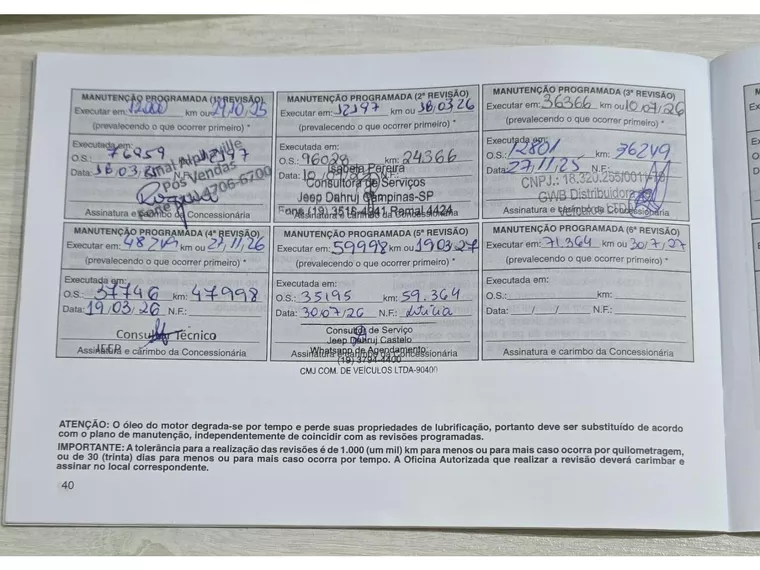 MANUTENÇÃO PROGRAMADA (1ª REVISÃO)
Executar em: 12.000 km ou 29.10.25
(prevalecendo o que ocorrer primeiro) *
Executada em:
O.S.: 76959 km: 12197
Data: 18.03.
Pós Vendas
4706-6700
Assinatura e carimbo da Concessionária
MANUTENÇÃO PROGRAMADA (2ª REVISÃO)
Executar em: km ou 18.03.26
(prevalecendo o que ocorrer primeiro) *
Executada em:
O.S.: 96028 km: 24366
Data: 10/07/ N.F.:
Isabela Pereira
Consultora de Serviços
Jeep Dahruj Campinas-SP
Fone (19) 3518-4941 Ramal 4424
Assinatura e carimbo da Concessionária
MANUTENÇÃO PROGRAMADA (3ª REVISÃO)
Executar em: 36366 km ou 10/07/26
(prevalecendo o que ocorrer primeiro) *
Executada em:
O.S.: 12801 km: 36249
Data: 27/11/25 N.F.:
CNPJ.: 18.320.255/001
GWB Distribuidora
Assinatura e carimbo da Concessionária
MANUTENÇÃO PROGRAMADA (4ª REVISÃO)
Executar em: 48249 km ou 27/11/26
(prevalecendo o que ocorrer primeiro) *
Executada em:
O.S.: 37746 km: 47998
Data: 19/03/26 N.F.:
Consultor Técnico
JEEP
Assinatura e carimbo da Concessionária
MANUTENÇÃO PROGRAMADA (5ª REVISÃO)
Executar em: 59998 km ou 19.03.27
(prevalecendo o que ocorrer primeiro) *
Executada em:
O.S.: 35195 km: 59.364
Data: 30/07/26 N.F.: Leticia
Consultor de Serviço
Jeep Dahruj Castelo
Whatsapp de Agendamento
(19) 3794-4400
Assinatura e carimbo da Concessionária
CMJ COM. DE VEÍCULOS LTDA-90400
MANUTENÇÃO PROGRAMADA (6ª REVISÃO)
Executar em: 71.364 km ou 30/7/27
(prevalecendo o que ocorrer primeiro) *
Executada em:
O.S.: km:
Data: / / N.F.:
Assinatura e carimbo da Concessionária
ATENÇÃO: O óleo do motor degrada-se por tempo e perde suas propriedades de lubrificação, portanto deve ser substituído de acordo
com o plano de manutenção, independentemente de coincidir com as revisões programadas.
IMPORTANTE: A tolerância para a realização das revisões é de 1.000 (um mil) km para menos ou para mais caso ocorra por quilometragem,
ou de 30 (trinta) dias para menos ou para mais caso ocorra por tempo. A Oficina Autorizada que realizar a revisão deverá carimbar e
assinar no local correspondente.
40